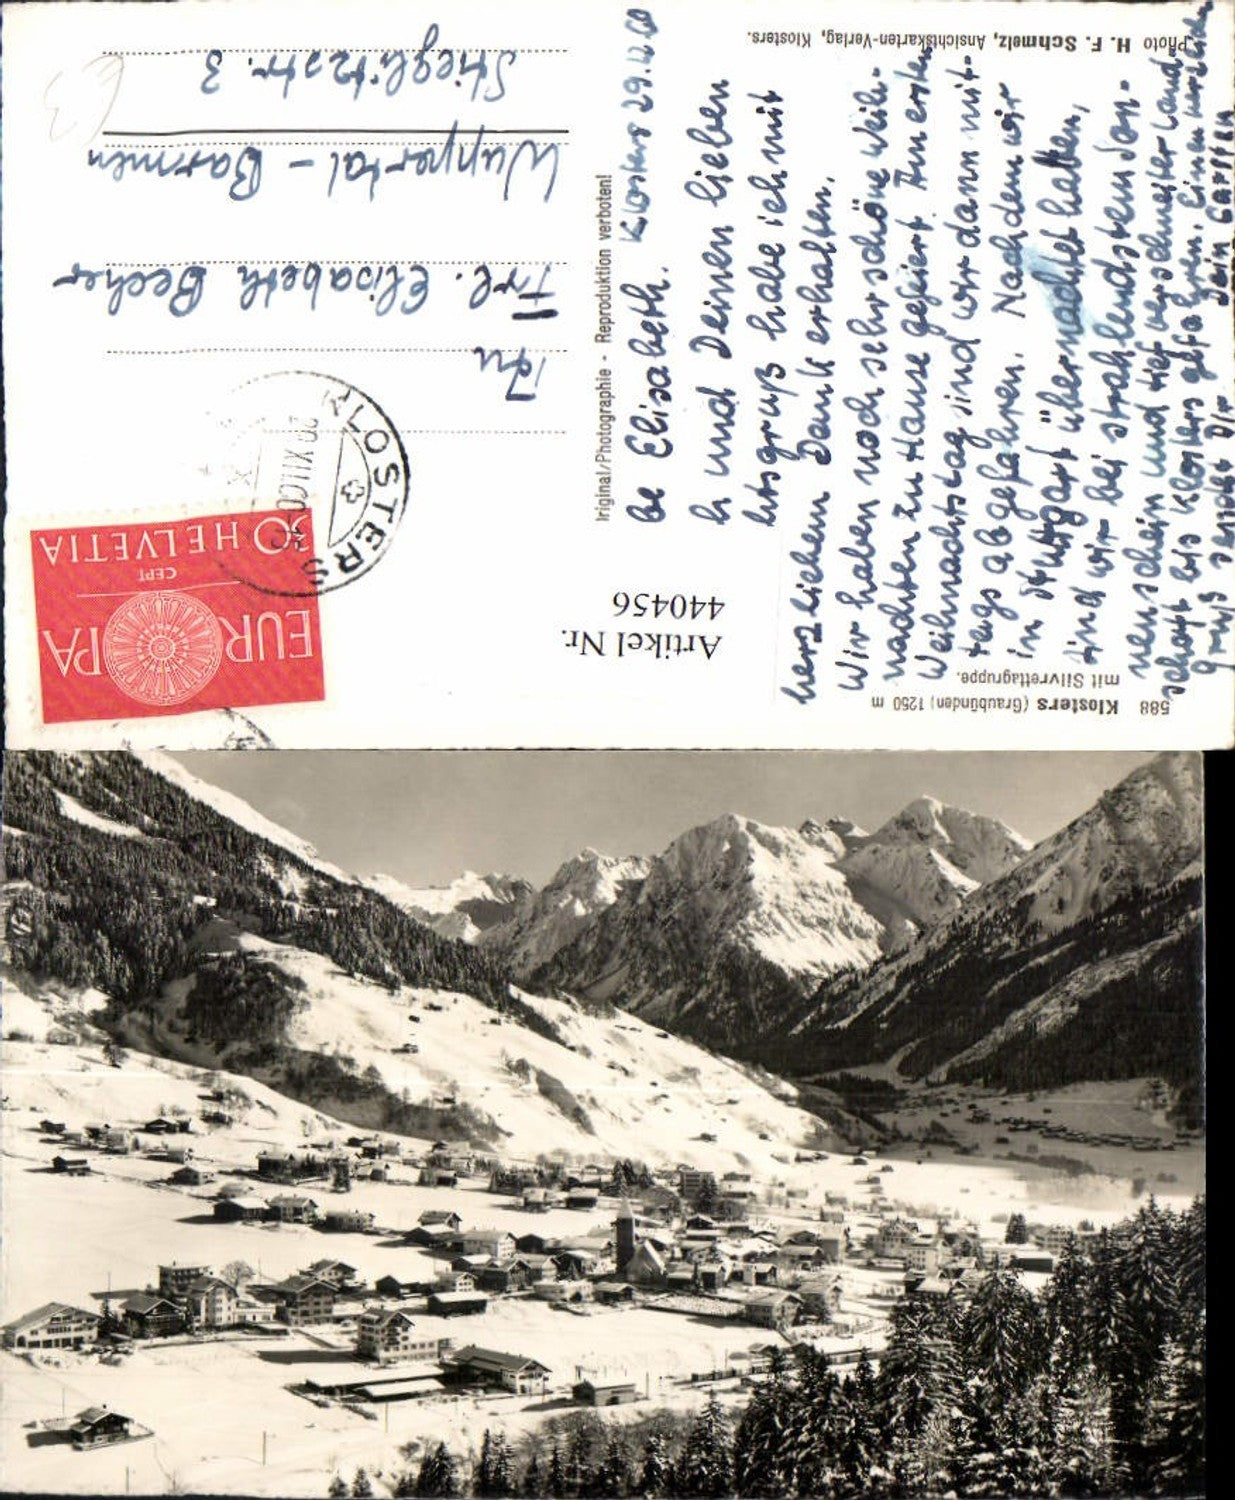 588 Klosters (Graubünden) 1250 m
mit Silvrettagruppe.
Photo H. F. Schmelz, Ansichtskarten-Verlag, Klosters.
Klosters 29.12.60
be Elisabeth.
h und Deinen lieben
htsgruß habe ich mit
herzlichem Dank erhalten.
Wir haben noch sehr schöne Weih-
nachten zu Hause gefeiert. Am ersten
Weihnachtstag sind wir dann mit-
tags abgefahren. Nachdem wir
in Stuttgart übernachtet hatten,
sind wir bei strahlendstem Son-
nenschein und tief verschneiter Land-
schaft bis Klosters gefahren. Einen herzlichen
Gruß sendet Dir Dein Carsten
riginal/Photographie - Reproduktion verboten!
EUROPA
CEPT
30 HELVETIA
KLOSTERS
An
Frl. Elisabeth Becher
Wuppertal - Barmen
Stieglitzstr. 3
Artikel Nr.
440456